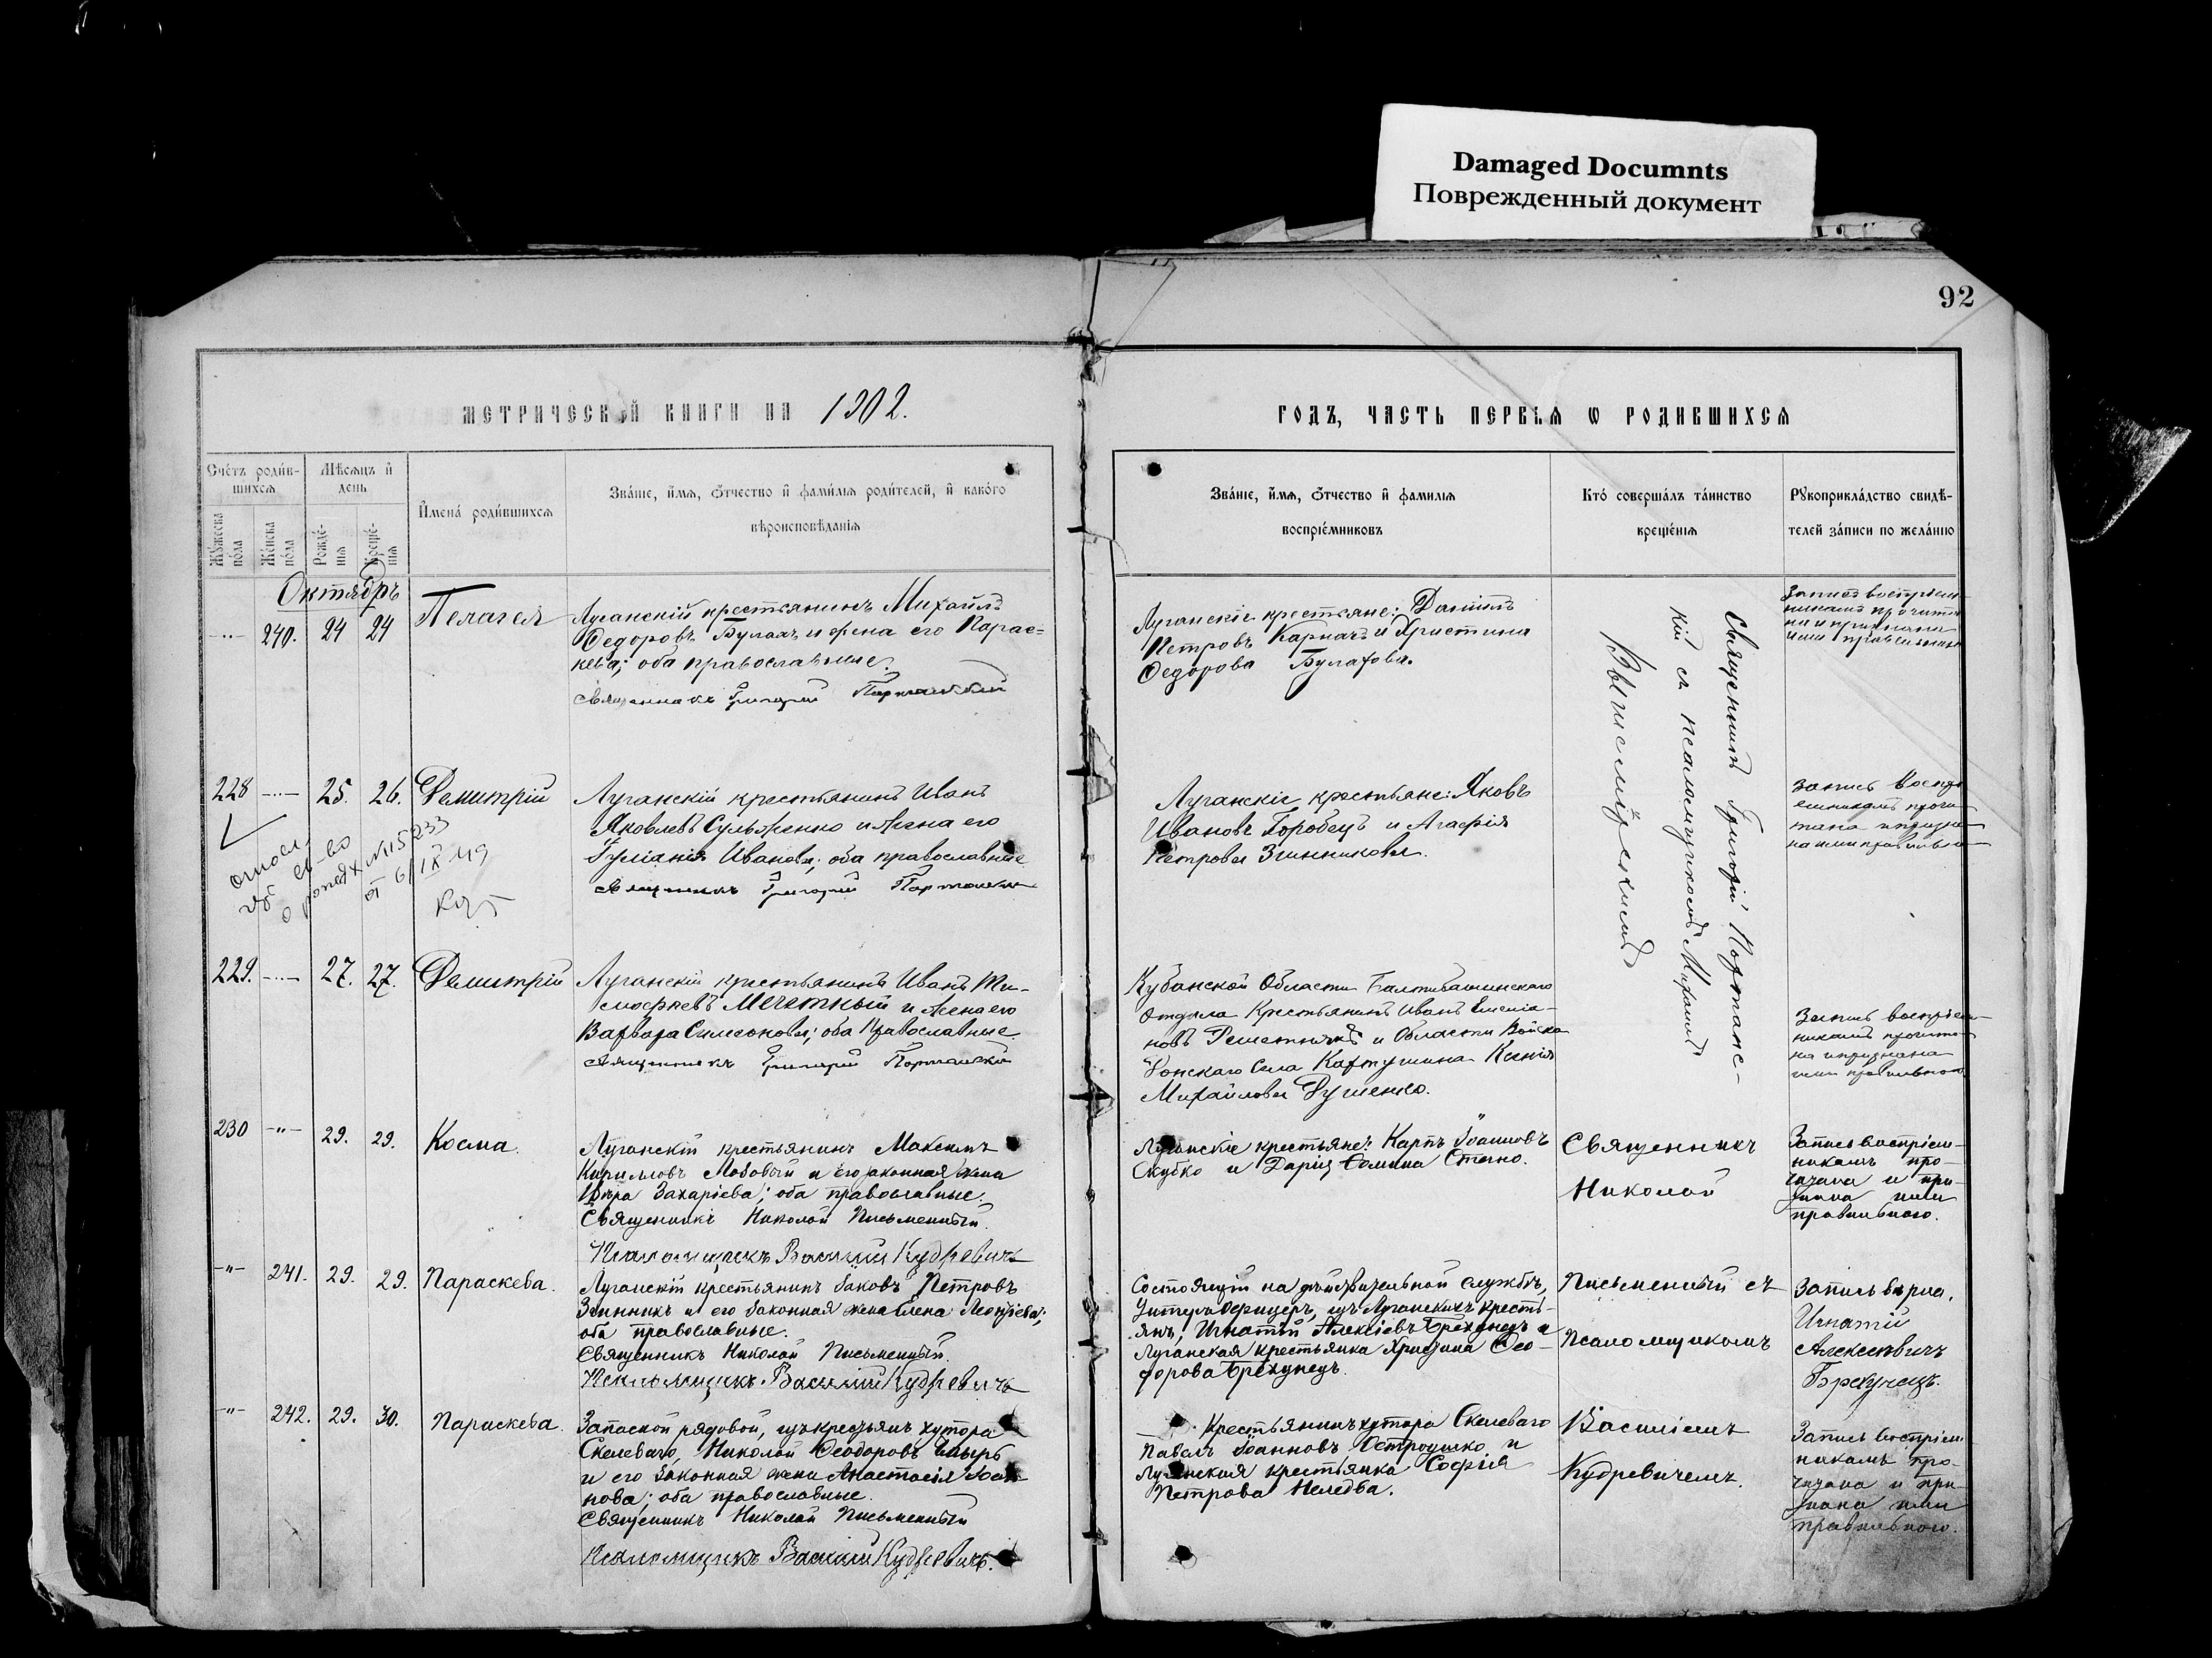 Damaged Documnts
Поврежденный документ
92
МЕТРИЧЕСКОЙ КНИГИ НА 1902.
ГОДЪ, ЧАСТЬ ПЕРВАЯ Ѡ РОДИВШИХСЯ
Счетъ родив-
шихся
Мѣсяцъ и
день
Мужеска
пола
Женска
пола
Рожде-
нія
Креще-
нія
Имена родившихся
Званіе, имя, отчество и фамилія родителей, и какого
вѣроисповѣданія
Званіе, имя, отчество и фамилія
воспріемниковъ
Кто совершалъ таинство
крещенія
Рукоприкладство свидѣ-
телей записи по желанію
Октябрь
-"- 240. 24 24 Пелагея
Луганскій крестьянинъ Михаилъ
Федоровъ Булах и жена его Парас=
кева; оба православные.
Священникъ Григорій
Луганскіе крестьяне: Даніилъ
Петровъ Карначъ и Христина
Федорова Булахова.
Священникъ Григорій Портанс-
кій съ псаломщикомъ Михаиломъ
Запись воспріем-
никамъ прочита
на и признана
ими правильною
228 -"- 25. 26. Демитрій
Луганскій крестьянинъ Иванъ
Яковлевъ Сульженко и жена его
Іуліанія Иванова; оба православные
Священникъ Григорій
Луганскіе крестьяне: Яковъ
Ивановъ Горобецъ и Агафія
Петрова Зинникова.
Запись воспрі
емникамъ прочи-
тана и призна-
на ими правильно
о рожд № 15233
от 6/IX 49
229. -"- 27. 27. Демитрій
Луганскій крестьянинъ Иванъ Ти-
мофеевъ Мечетный и жена его
Варвара Симеонова; оба Православные
Священникъ Григорій
Кубанской Области
отдѣла Крестьянинъ Иванъ Емелья-
новъ и Области Войска
Донскаго Села Картушина Ксенія
Михайлова Душенко.
Запись воспріем-
никамъ прочита-
на и признана
ими правильною
230 -"- 29. 29. Косма.
Луганскій крестьянинъ Максимъ
Кирилловъ Лобовый и его законная жена
Вѣра Захаріева; оба православные.
Священникъ Николай Письменный.
Псаломщикъ Василій Кудревичъ
Луганскіе крестьяне: Карпъ Іоанновъ
Скубко и Дарія Ѳомина Стегно.
Священникъ
Николай
Запись воспріем-
никамъ про-
читана и при-
знана ими
правильною.
-"- 241. 29. 29. Параскева.
Луганскій крестьянинъ Іаковъ Петровъ
Зинникъ и его законная жена Елена Леонтіева;
оба православные.
Священникъ Николай Письменный.
Псаломщикъ Василій Кудревичъ
Состоящій на дѣйствительной службѣ,
Унтеръ Офицеръ, изъ Луганскихъ кресть-
янъ, Игнатій Алексіевъ Брехунецъ и
Луганская крестьянка Христина Ѳео-
дорова Брехунецъ.
Письменный съ
Псаломщикомъ
Запись вѣрна.
Игнатій
Алексеевичъ
Брехунецъ.
-"- 242. 29. 30. Параскева.
Запасной рядовой, изъ крестьянъ хутора
Скелеваго, Николай Ѳеодоровъ
и его законная жена Анастасія Іоан-
нова; оба православные.
Священникъ Николай Письменный
Псаломщикъ Василій Кудревичъ.
Крестьянинъ хутора Скелеваго
Павелъ Іоанновъ Остроушко и
Луганская крестьянка Софія
Петрова Неледва.
Василіемъ
Кудревичемъ.
Запись воспріем
никамъ про-
читана и при-
знана ими
правильною.